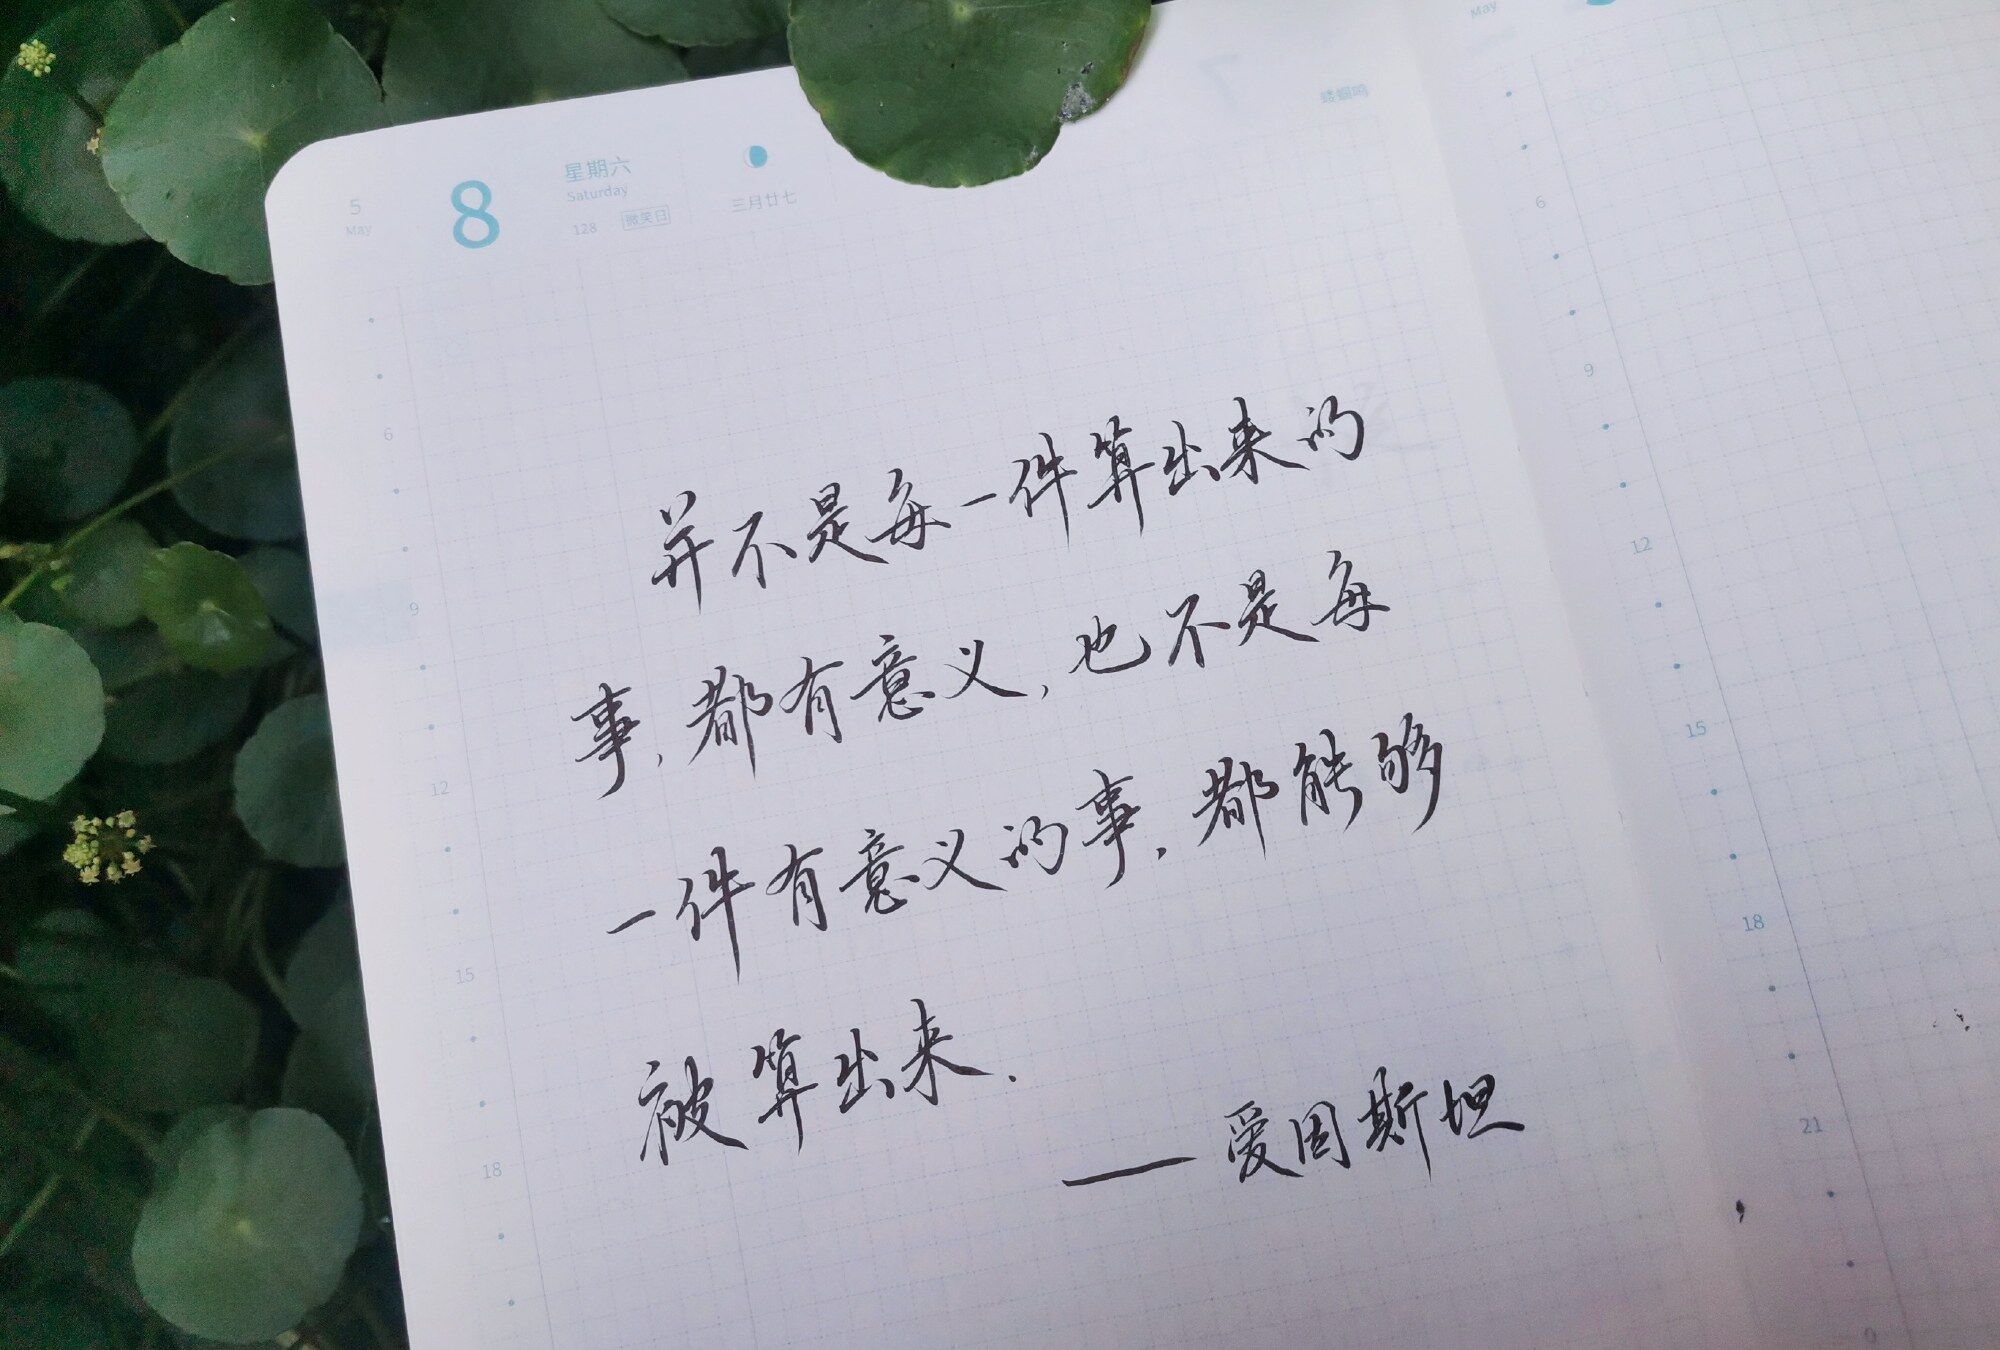 5
May
8
星期六
Saturday
128 微笑日
三月廿七
蝼蝈鸣
并不是每一件算出来的
事，都有意义，也不是每
一件有意义的事，都能够
被算出来．
——爱因斯坦
6
9
12
15
18
May
6
9
12
15
18
21